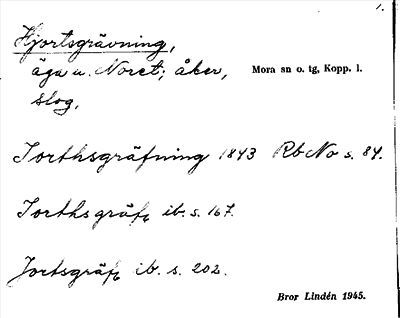 1.
Hjortsgrävning,
äga u. Noret; åker,
Mora sn o. tg, Kopp. l.
slog.
Iorthsgräfning 1843 Rb No s. 84.
Iorthsgräf, ib. s. 167.
Jortsgräf, ib. s. 202.
Bror Lindén 1945.